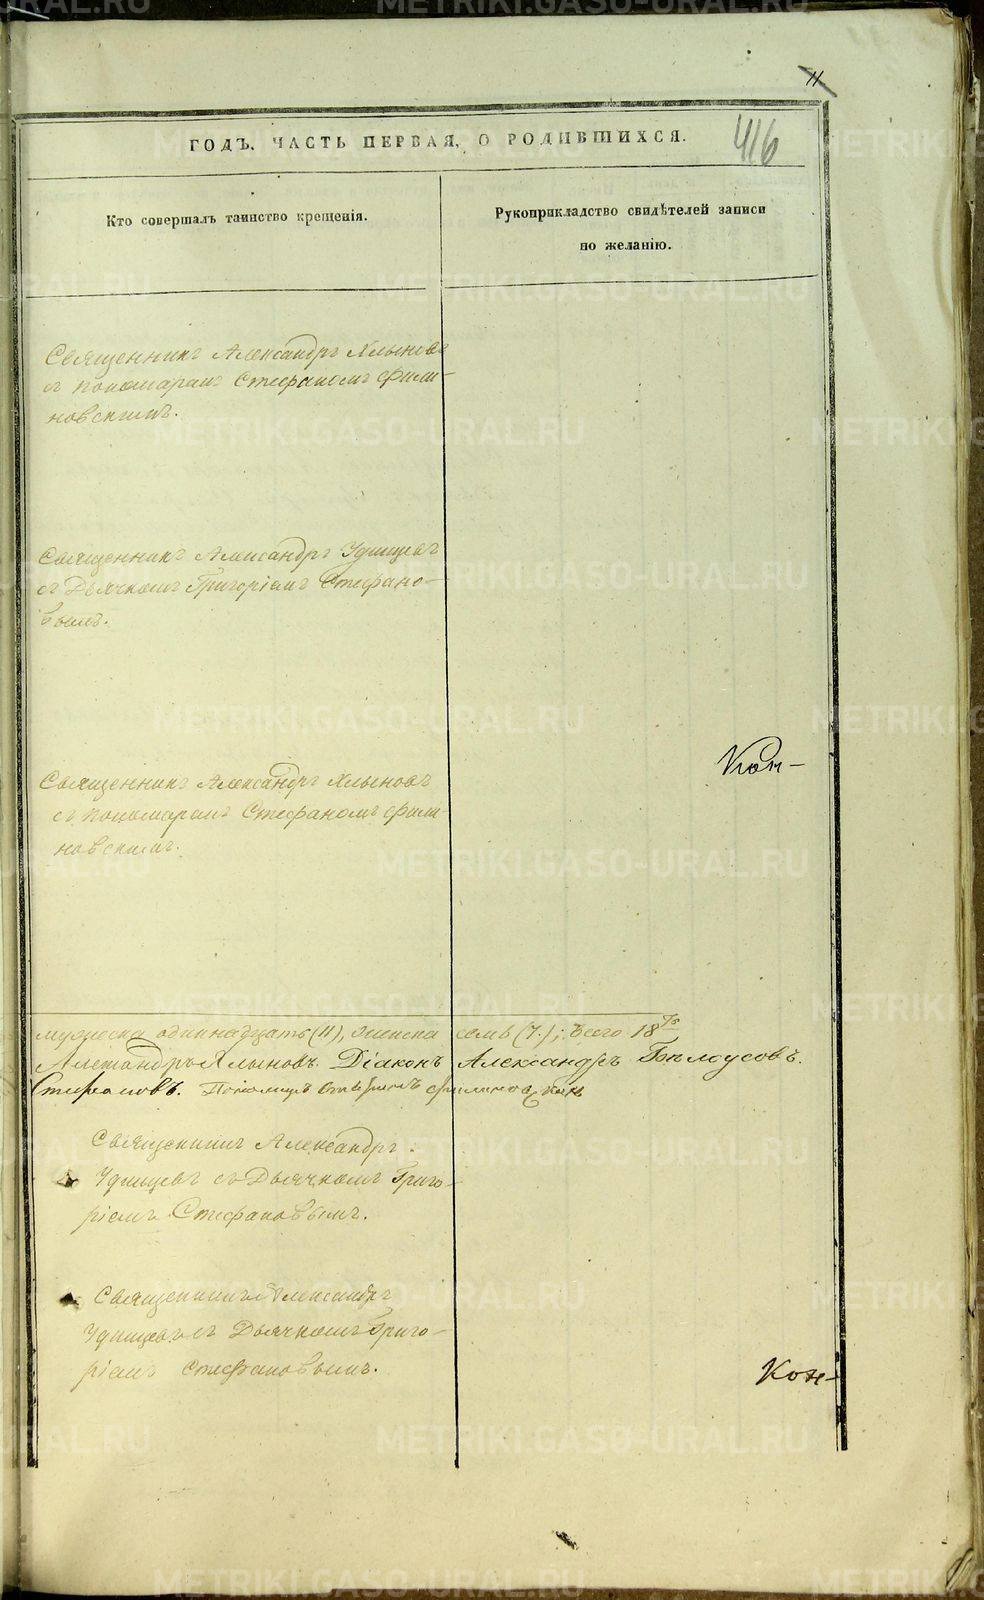 11
416
ГОДЪ. ЧАСТЬ ПЕРВАЯ, О РОДИВШИХСЯ.
Кто совершалъ таинство крещенія.
Рукоприкладство свидѣтелей записи
по желанію.
Священникъ Александръ Хлыновъ
съ Пономаремъ Стефаномъ Фили-
новскимъ.
Священникъ Александръ Удинцевъ
съ Дьячкомъ Григоріемъ Стефано-
вымъ.
Кон-
Священникъ Александръ Хлыновъ
съ Пономаремъ Стефаномъ Фили
новскимъ.
мужеска одиннадцать (11), женска семь (7.); всего 18
Александръ Хлыновъ. Діаконъ Александръ Бѣлоусовъ.
Стефановъ. Пономарь
Священникъ Александръ
Удинцевъ съ Дьячкомъ Григо-
ріемъ Стефановымъ.
Священникъ Александръ
Удинцевъ съ Дьячкомъ Григо-
ріемъ Стефановымъ.
Кон-
METRIKI.GASO-URAL.RU